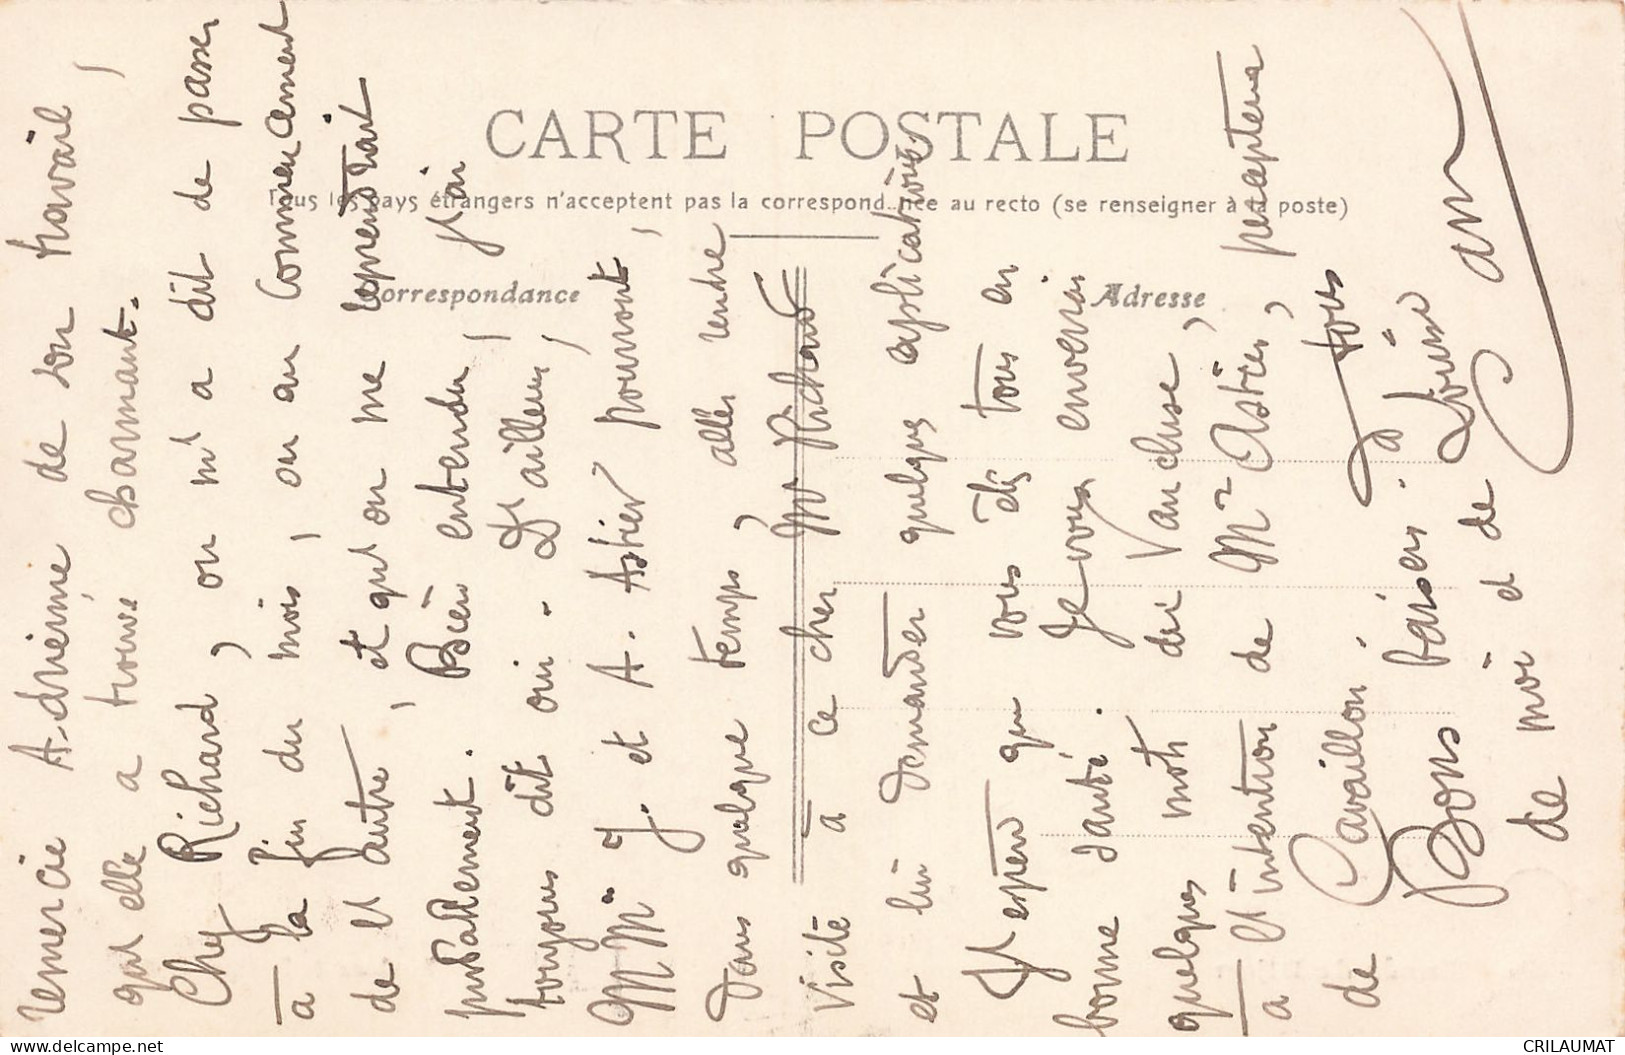 CARTE POSTALE
Tous les pays étrangers n'acceptent pas la correspondance au recto (se renseigner à la poste)
Correspondance
Adresse
remercie Adrienne de son travail,
qu'elle a trouvé charmant.
Chez Richard, on m'a dit de passer
à la fin du mois, ou au commencement
de l'autre, et qu'on me reprendrait
probablement. Bien entendu, j'ai
toujours dit oui. D'ailleurs,
MM J. et A. Astier pourront,
dans quelque temps, aller rendre
visite à ce cher Mr Richard
et lui demander quelques explications
J'espère que vous êtes tous en
bonne santé. Je vous enverrai
quelques mots du Vaucluse,
à l'intention de Mr Astier, percepteur
de Cavaillon. à tous
Bons baisers à Louise
de moi et de
Delcampe.net
CRILAUMAT